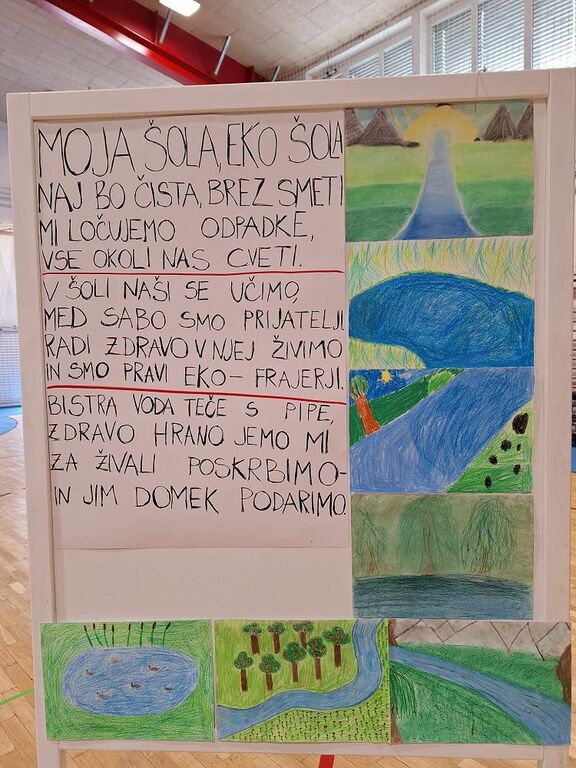 MOJA ŠOLA, EKO ŠOLA
NAJ BO ČISTA, BREZ SMETI
MI LOČUJEMO ODPADKE,
VSE OKOLI NAS CVETI.
V ŠOLI NAŠI SE UČIMO,
MED SABO SMO PRIJATELJI.
RADI ZDRAVO V NJEJ ŽIVIMO
IN SMO PRAVI EKO-FRAJERJI.
BISTRA VODA TEČE S PIPE,
ZDRAVO HRANO JEMO MI
ZA ŽIVALI POSKRBIMO-
IN JIM DOMEK PODARIMO.